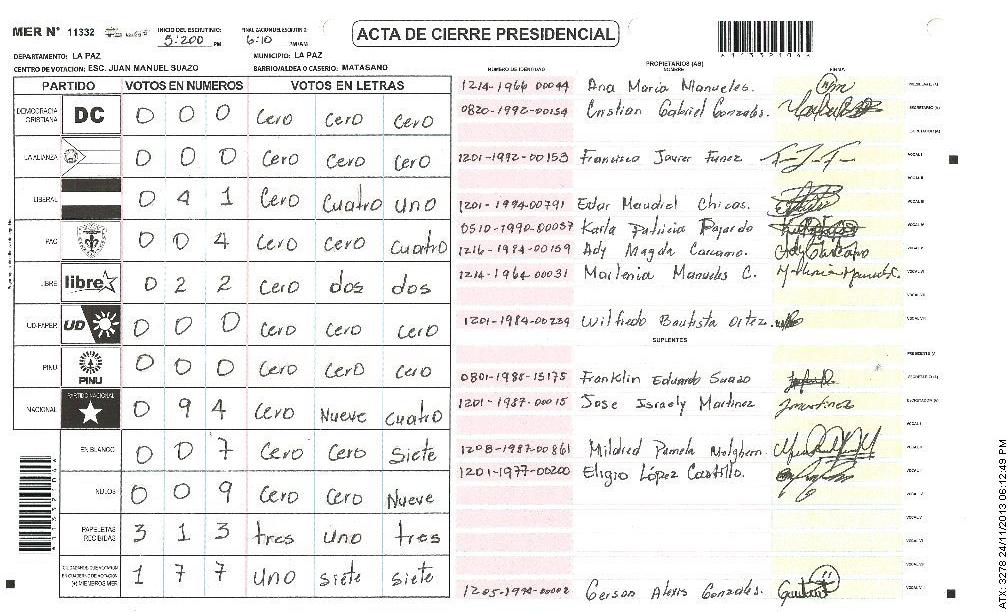 MER N° 11332
INICIO DEL ESCRUTINIO:
5:200 PM
6:10 PM/AM
ACTA DE CIERRE PRESIDENCIAL
DEPARTAMENTO: LA PAZ
MUNICIPIO: LA PAZ
CENTRO DE VOTACION: ESC. JUAN MANUEL SUAZO
BARRIO/ALDEA O CASERIO: MATASANO
PARTIDO VOTOS EN NUMEROS VOTOS EN LETRAS
DEMOCRACIA CRISTIANA DC 0 0 0 Cero Cero Cero
LA ALIANZA 0 0 0 Cero Cero Cero
LIBERAL 0 4 1 Cero Cuatro Uno
PAC 0 0 4 Cero Cero Cuatro
LIBRE libre 0 2 2 Cero dos dos
UD-FAPER UD 0 0 0 Cero Cero Cero
PINU PINU 0 0 0 Cero Cero Cero
NACIONAL PARTIDO NACIONAL 0 9 4 Cero Nueve Cuatro
EN BLANCO 0 0 7 Cero Cero Siete
NULOS 0 0 9 Cero Cero Nueve
PAPELETAS RECIBIDAS 3 1 3 tres uno tres
1 7 7 Uno siete siete
PROPIETARIOS (AS)
NUMERO DE IDENTIDAD NOMBRE FIRMA
1214-1966 00044 Ana Maria Manueles.
0820-1992-00154 Cristian Gabriel Gonzales.
1201-1992-00153 Francisco Javier Funez
1201-1994-00791 Edar Maudiel Chicas.
0510-1990-00037 Karla Patricia Pajardo
1216-1984-00159 Ady Magda Carcamo.
1214-1964-00031 Marlenia Manueles C.
1201-1984-00239 Wilfredo Bautista Ortez.
SUPLENTES
0801-1988-15175 Franklin Eduardo Suazo
1201-1987-00015 Jose Israely Martinez
1208-1987-00861 Mildred Pamela
1201-1977-00200 Eligio López Castillo.
1205-1994-00002 Gerson Alexis Gonzales.
ATX 3278 24/11/2013 06:12:49 PM